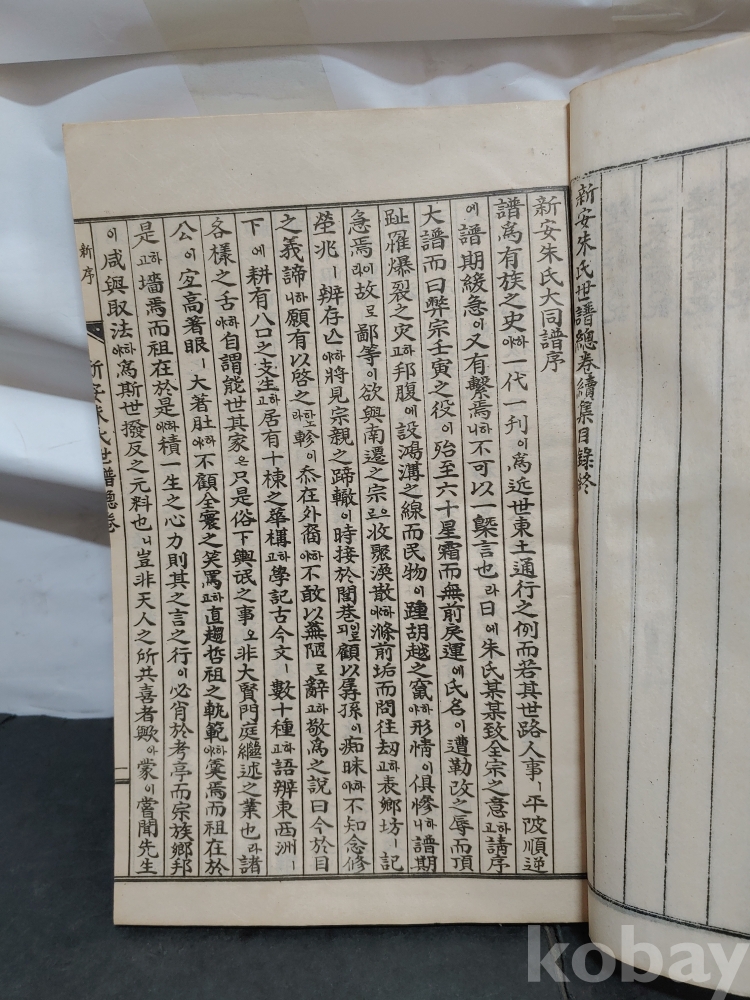 新安朱氏世譜總卷續集目錄終
新安朱氏大同譜序
譜爲有族之史하야一代一刊이爲近世東土通行之例而若其世路人事ㅣ平陂順逆
에譜期緩急이又有繫焉하니不可以一槩言也라日에朱氏某某致全宗之意하고請序
大譜而曰弊宗壬寅之役이殆至六十星霜而無前戾運에氏名이遭勒改之辱而頂
趾罹爆裂之灾하고邦腹에設鴻溝之線而民物이踵胡越之竄하야形情이俱慘하니譜期
急焉이라故로鄙等이欲與南遷之宗으로收聚渙散하야滌前垢而問往刧하고表鄕坊ㅣ記
塋兆ㅣ辨存亾하야將見宗親之蹄轍이時接於閭巷일되顧以孱孫이痴昧하야不知念修
之義諦하니願有以啓之하노라軫이忝在外裔하야不敢以蕪陋로辭하고敬爲之說曰今於目
下에耕有八口之支生하고居有十棟之華構하고學記古今文ㅣ數十種하고語辨東西洲ㅣ
各樣之舌하야自謂能世其家온只是俗下輿氓之事오非大賢門庭繼述之業也라諸
公이宜高著眼ㅣ大著肚하야不顧全寰之笑罵하고直趨哲祖之軌範하야羹焉而祖在於
是하고墻焉而祖在於是하야積一生之心力則其之言之行이必肖於考亭而宗族鄕邦
이咸興取法하야爲斯世撥反之元料也니豈非天人之所共喜者歟아蒙이嘗聞先生
新序
新安朱氏世譜總卷
一
kobay